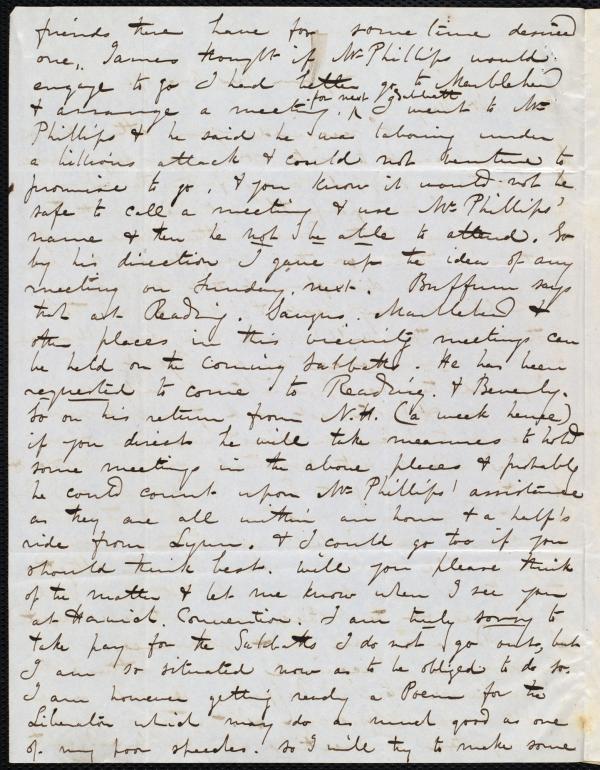 friends there have for some time desired
one, James thought if Mr Phillips would
engage to go I had better go to Marblehead
& arrange a meeting for next Sabbath. I went to Mr
Phillips & he said he was laboring under
a billious attack & could not venture to
promise to go, & you know it would not be
safe to call a meeting & use Mr Phillips'
name & then he not be able to attend. So
by his direction I gave up the idea of any
meeting on Sunday next. Buffum says
that at Reading, Saugus, Marblehead &
other places in this vicinity meetings can
be held on the coming Sabbaths. He has been
requested to come to Reading & Beverly.
So on his return from N.H. (a week hence)
if you direct he will take measures to hold
some meetings in the above places & probably
he could count upon Mr Phillips' assistance
as they are all within an hour & a half's
ride from Lynn. & I could go too if you
should think best. will you please think
of the matter & let me know when I see you
at Harwich Convention. I am truly sorry to
take pay for the Sabbaths I do not go out, but
I am so situated now as to be obliged to do so.
I am however getting ready a Poem for the
Liberator which may do as much good as one
of my poor speeches. so I will try to make some